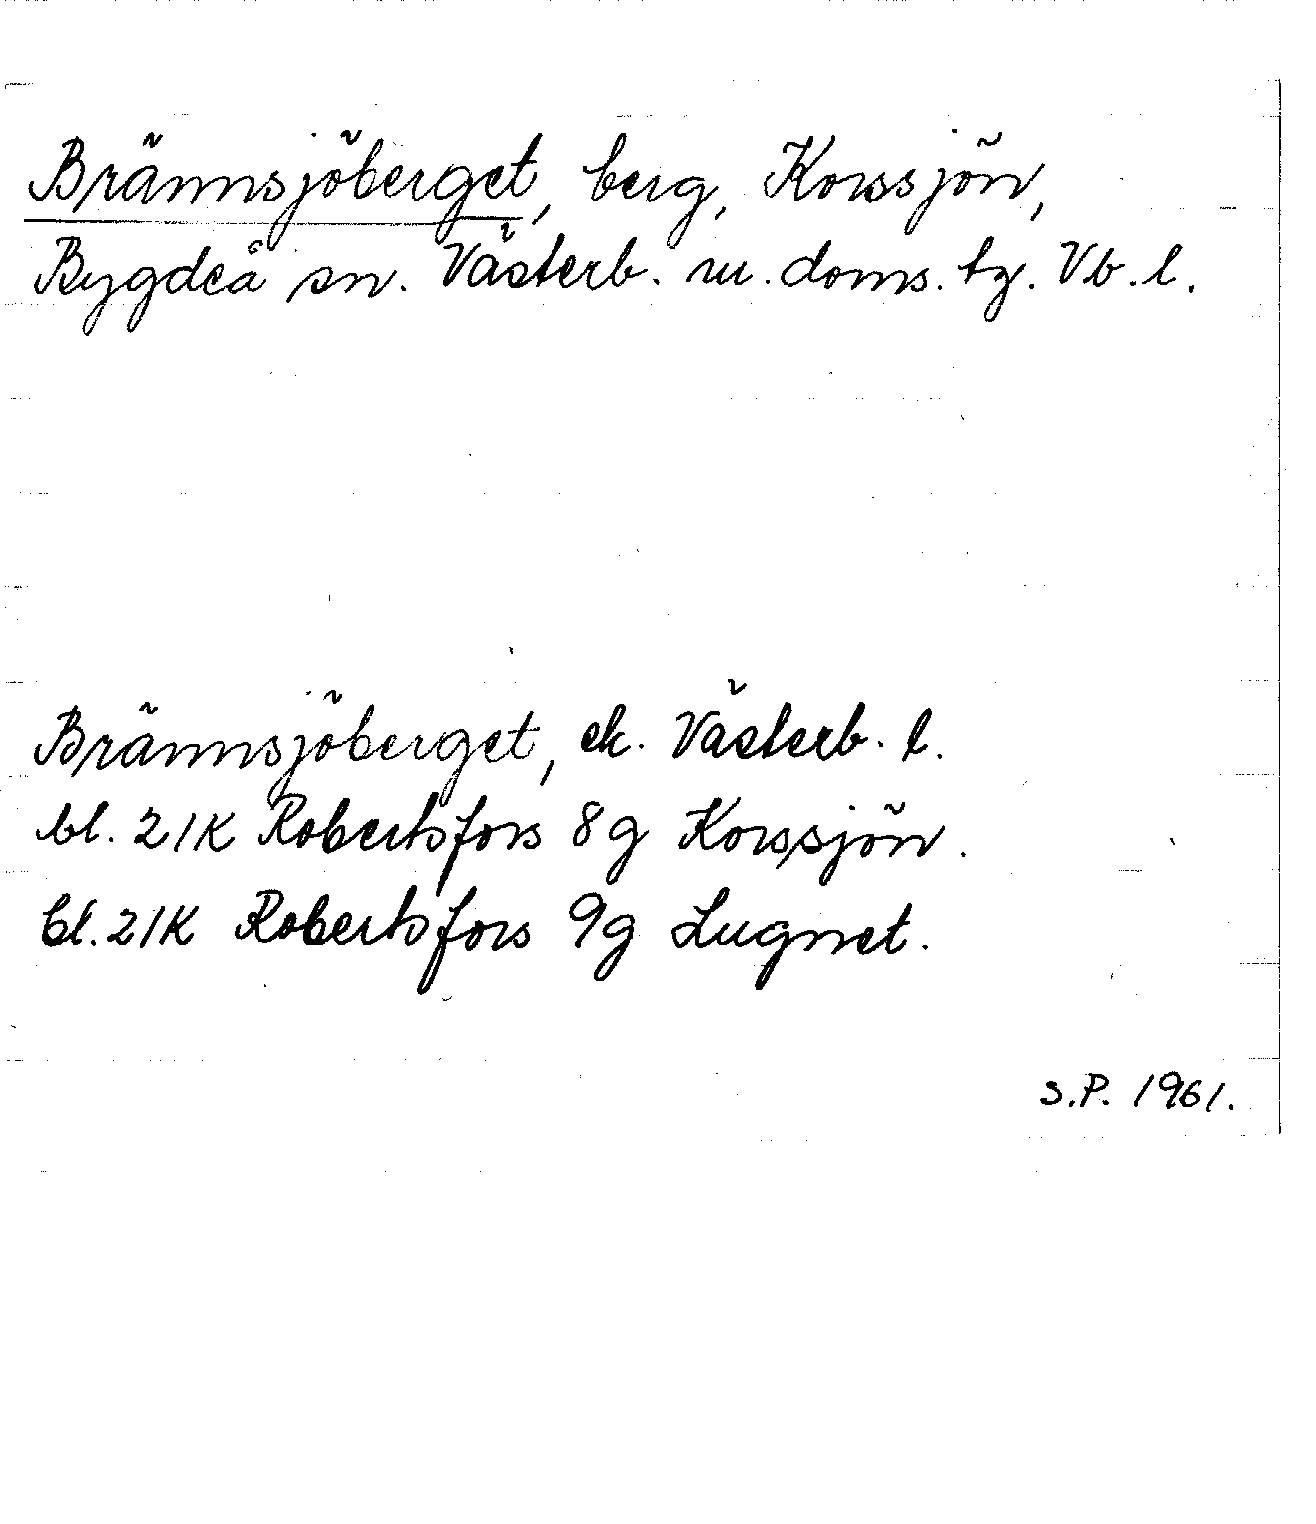 Brännsjöberget, berg, Korssjön,
Bygdeå sn. Västerb. m. doms. tg. Vb. l.
Brännsjöberget, ek. Västerb. l.
bl. 21K Robertsfors 8g Korssjön.
bl. 21K Robertsfors 9g Lugnet.
S.P. 1961.